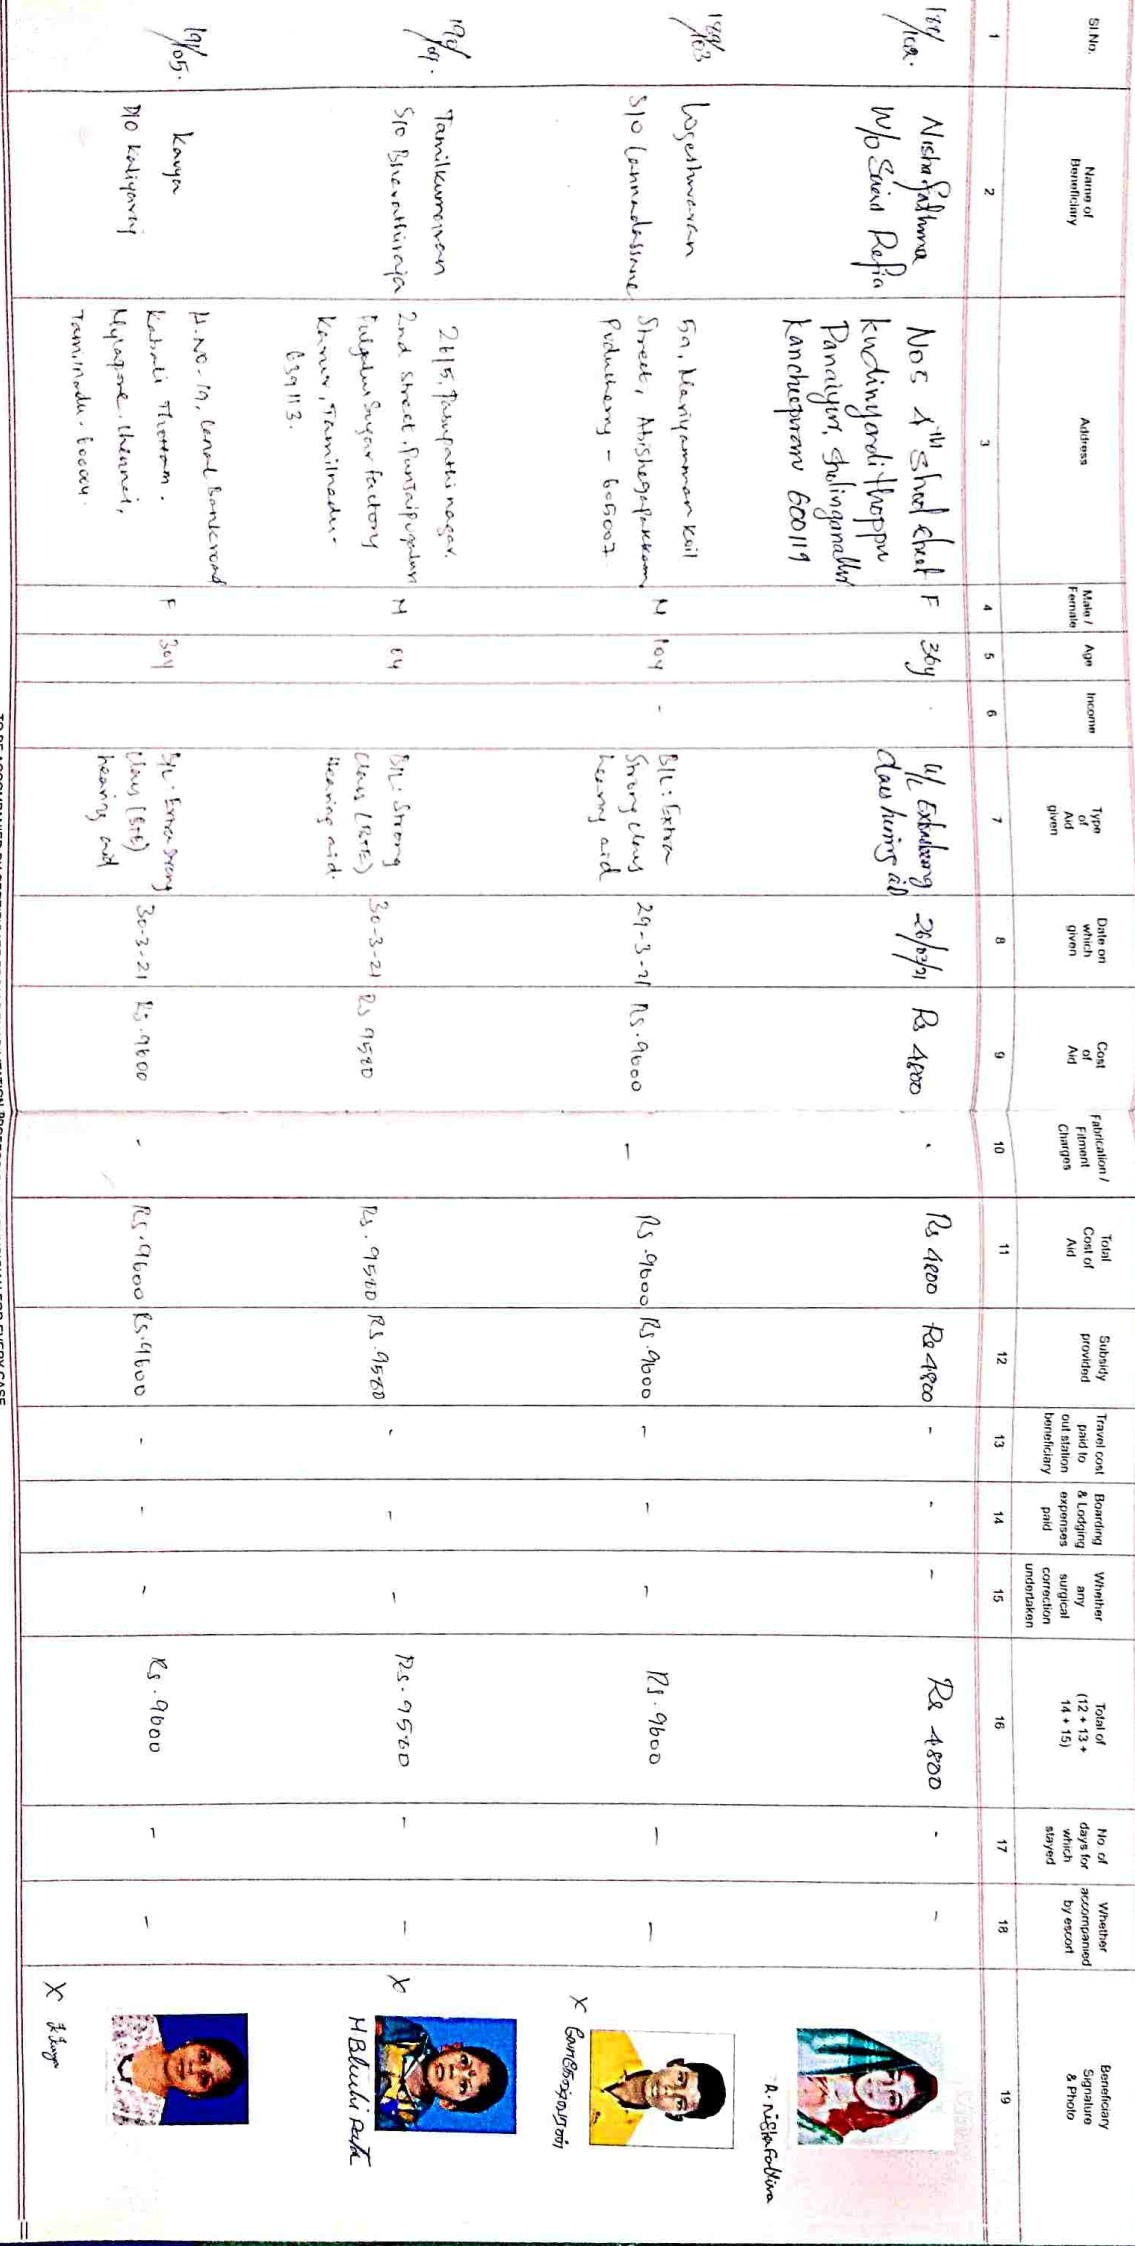 Sl No.
Name of
Beneficiary
Address
Male /
Female
Age
Income
Type
of
Aid
given
Date on
which
given
Cost
of
Aid
Fabrication /
Fitment
Charges
Total
Cost of
Aid
Subsidy
provided
Travel cost
paid to
out station
beneficiary
Boarding
& Lodging
expenses
paid
Whether
any
surgical
correction
undertaken
Total of
(12 + 13 +
14 + 15)
No. of
days for
which
stayed
Whether
accompanied
by escort
Beneficiary
Signature
& Photo
1 2 3 4 5 6 7 8 9 10 11 12 13 14 15 16 17 18 19
188/102.
Nisha Fathima
W/o Saied Refia
No 5 4th
Panaiyur, Sholinganallur
Kancheepuram 600119
F
36y
U/L
26/03/21
Rs 4800
-
Rs 4800
Rs 4800
-
-
-
Rs 4800
-
-
R. Nisha Fathima
189/103
Logeshwaran
S/O Cannadassane
59, Mariyamman Koil
Street, Abishegapakkam
Puducherry - 605007.
M
10y
-
B/L: Extra
Strong class
hearing aid
29-3-21
Rs. 9600
-
Rs. 9600
Rs. 9600
-
-
-
Rs. 9600
-
-
X
190/04.
Tamilkumaran
S/o Bharathiraja
26/5, Pasupathi nagar,
2nd Street, Punjaipugalur
Pugalur Sugar Factory
Karur, Tamilnadu -
639113.
M
B/L: Strong
class (BTE)
Hearing aid.
30-3-21
Rs 9580
Rs. 9580
Rs. 9580
-
-
-
Rs. 9580
-
-
X
191/05.
Kavya
D/O Kaliyaraj
H.NO-19, Canal Bank road
Kabali Thottam.
Mylapore, Chennai,
Tamilnadu - 600004.
F
30y
B/L: Extra Strong
class (BTE)
hearing aid
30-3-21
Rs. 9600
-
Rs. 9600
Rs. 9600
-
-
-
Rs. 9600
-
-
X